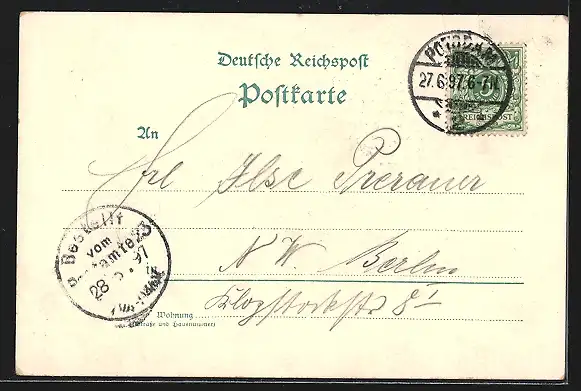 Deutsche Reichspost
Postkarte
POTSDAM
27.6.97.6-7N.
REICHSPOST
An
Frl Ilse Prerauer
N.W. Berlin
Klopstockstr 8I
Bestellt
vom
Postamte 23
28 6 97
Wohnung
(Straße und Hausnummer)